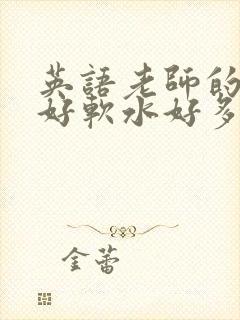 英語老師的
好軟水好多
金蕾